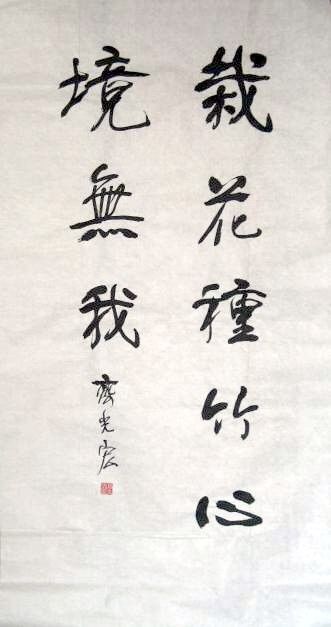 栽花種竹心
境無我
齊光宏